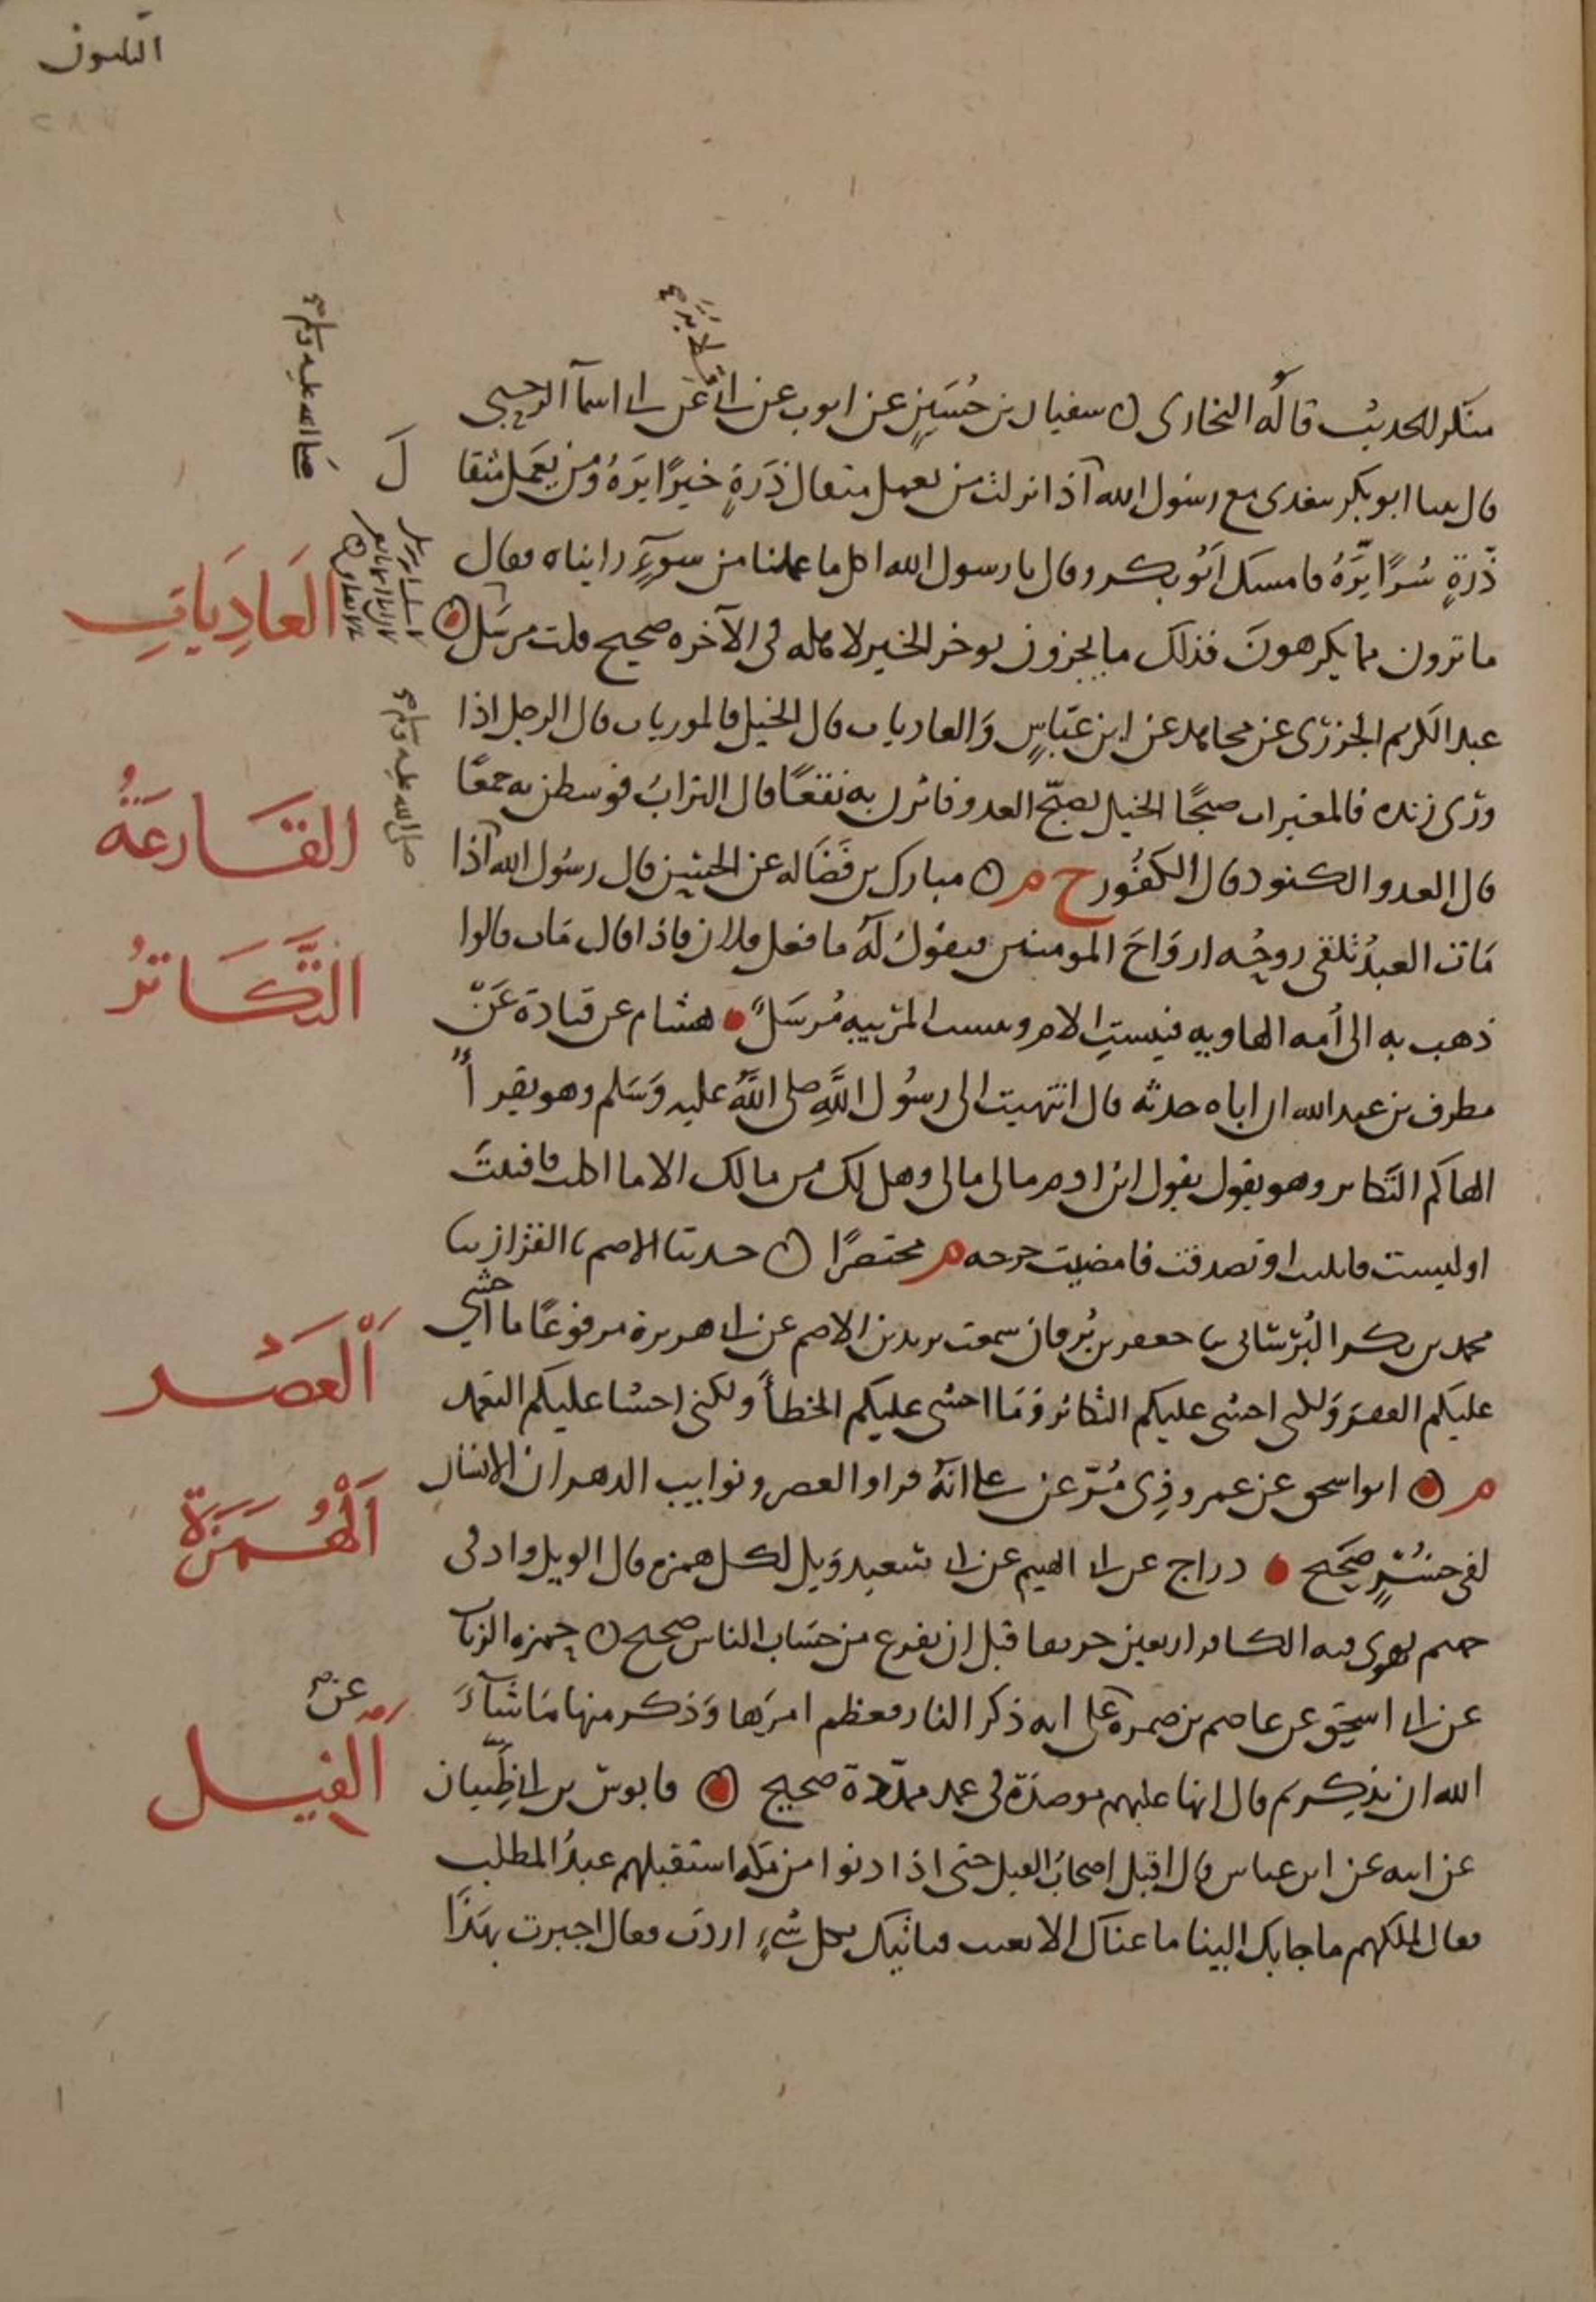 منكر الحديث قاله البخارى ۞ سفيان بن حُسَينٍ عن ايوب عن ابى قلابة عن ابى اسما الرحبى
قال بينا ابو بكر يتغدى مع رسول الله اذ انزلت من يعمل مثقال ذَرَةٍ خيرًا يَرَهُ وَمن يَعمَل مثقا
لَ
ذّرةٍ شرًا يَرَهُ فامسك ابُو بكر وقال يا رسول الله اكل ما عملنا من سوءٍ رايناه فقال
ما ترون مما يكرهونَ فذلك ما يجزون يوخر الخير لاهله فى الآخره صحيح قلت مرسَل ۞
العَادِيَاتِ
عبد الكريم الجزرى عن مجاهد عن ابن عبّاسٍ وَالعاديات قال الخيل فالموريات قال الرجل اذا
ورّى زنده فالمغيرات صبحًا الخيل تصبّح العدو فاثرن به نقعًا قال الترابُ فوسطن به جمعًا
القَارعَةُ
قال العدو الكنود قال الكفُور خ م ۞ مبارك بن فَضَاله عن الحسن قال رسُول الله اذا
صلى الله عليه وسلم
مَات العبدُ تلقى روحُه اروَاحَ المومنين فيقولُ لهُ ما فعل فلان فاذا قال مَات قالوا
التَّكَاثرُ
ذهب به الى أمه الهاويه فبيستِ الام وبيست المربيه مُرسَلٌ هشام عن قتادة عَنّ
مطرف بن عبد الله ان اباه حدثه قال انتهيت الى رسُول اللهِ صلى اللهُ عليه وَسَلم وهو يقرأ
الهاكم التكاثر وهو يقول يقول ابن ادم مالى مالى وهل لك من مالك الا ما اكلت فافنيتَ
او لبست فابليت او تصدقت فامضيت خرجه م مختصرًا ۞ حدثنا الاصم نا القزاز نا
محمد بن بكر البُرْسَانى نا جعفر بن بُرقان سمعت يزيد بن الاصم عن ابى هريرة مرفوعًا ما اخشى
العَصْر
عليكم الفقر وَلكنى اخشى عليكم التكاثر وَمَا اخشى عليكم الخطأ ولكنى اخشا عليكم التعمد
م ۞ ابو اسحق عن عمرو ذِى مُرّ عن على انّهُ قرا والعصر ونوايب الدهر ان الانسَان
اَلْهُمَزَة
لفى خُسْرٍ صَحيح درّاج عن ابى الهيثم عن ابى سَعيد وَيل لكل همزه قال الويل واد فى
جهنم يهوى فيه الكافر اربعين خريفا قبل ان يفرغ من حسَاب الناس صحيح ۞ حمزه الزيات
عن ابى اسحق عن عاصم بن ضمره عن على انه ذكر النار فعظم امرَها وَذكر منها مَا شَآءَ
الله ان يذكر ثم قال انها عليهم موصدَة فى عمد ممدّدة صحيح ۞ قابوس بن ابى ظَبيان
اَلْفِيل
عن ابيه عن ابن عباس قال اقبل اصحابُ الفيل حتى اذا دنوا من مكه استقبلهم عبدُ المطلب
فقال لملكهم ما جا بك الينا ما عنّاك الا بعثت فناتيك بكل شىءٍ اردت فقال اخبرت بهَذا